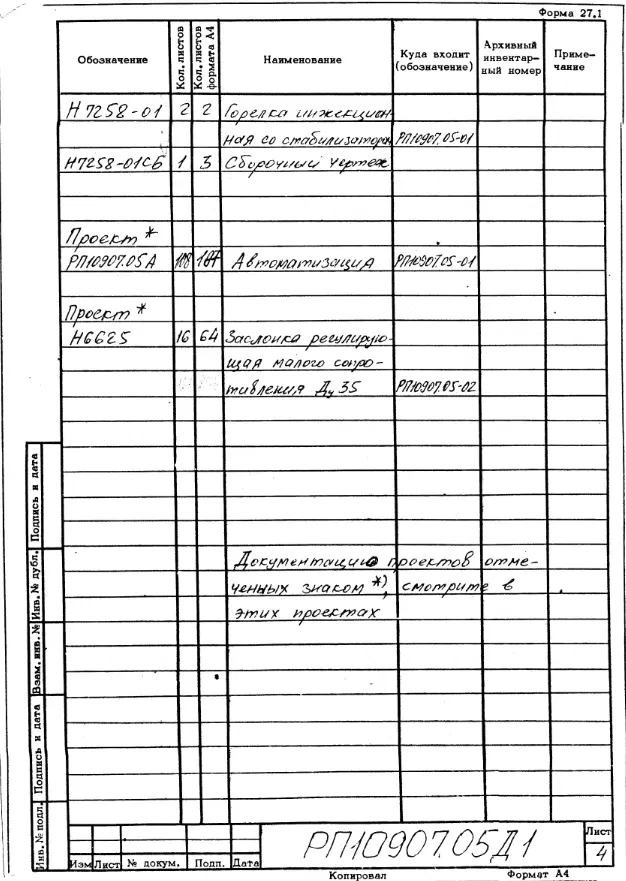 Форма 27.1
Обозначение
Кол. листов
Кол. листов формата А4
Наименование
Куда входит (обозначение)
Архивный инвентарный номер
Примечание
Н7258-01 2 2 Горелка инжекцион
ная со стабилизатором РП10907.05-01
Н7258-01СБ 1 3 Сборочный чертеж
Проект *
РП10907.05А 108 Автоматизация РП10907.05-01
Проект *
Н6625 16 64 Заслонка регулирую-
щая малого сопро-
тивления Ду 35 РП10907.05-02
Документацию проектов отме-
ченных знаком *), смотрите в
этих проектах
Инв. № подл. Подпись и дата Взам. инв. № Инв. № дубл. Подпись и дата
Изм Лист № докум. Подп. Дата
РП10907.05Д1
Лист
4
Копировал Формат А4